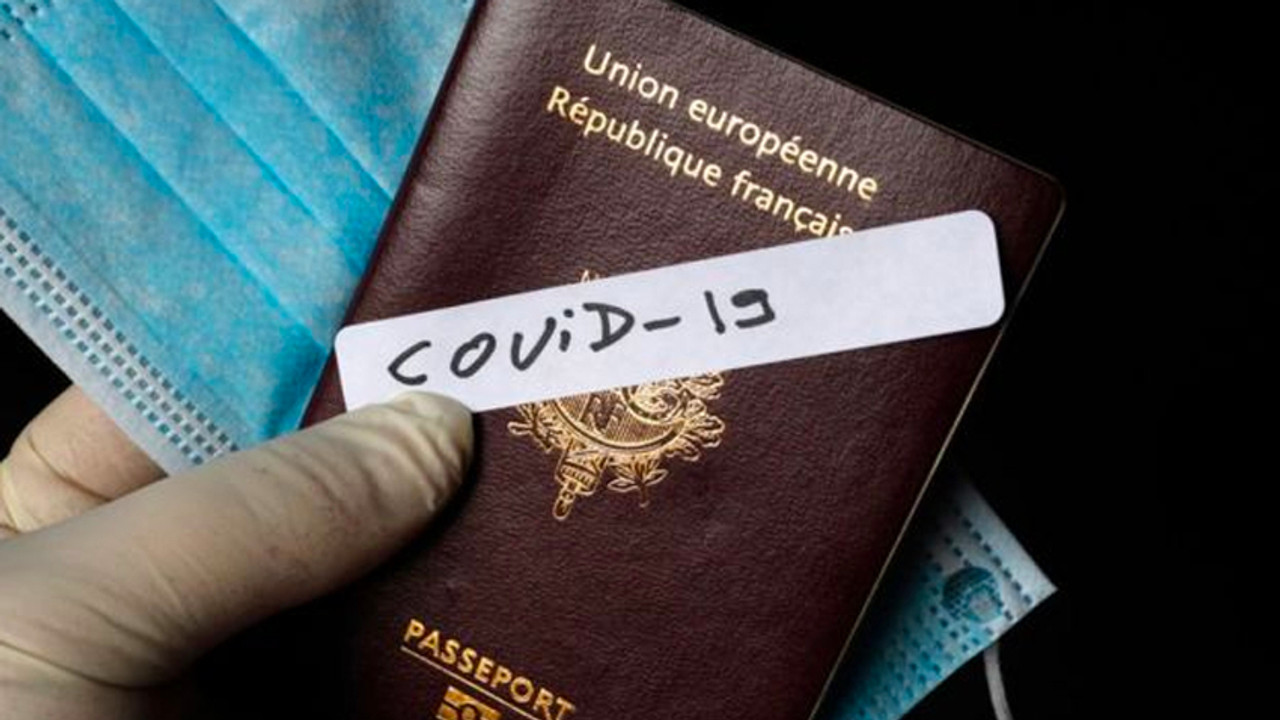 Union européenne
République français
COViD-19
PASSEPORT